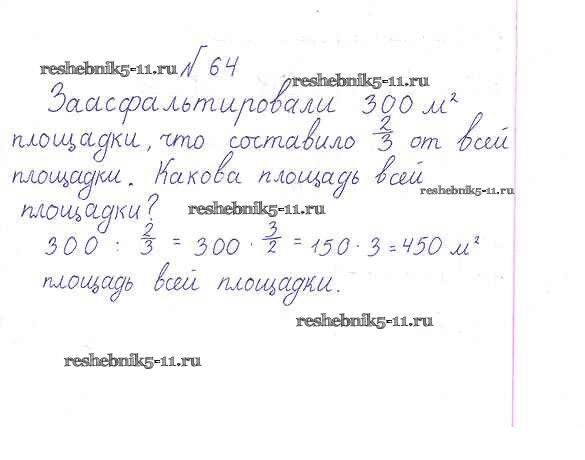 reshebnik5-11.ru № 64
reshebnik5-11.ru
Заасфальтировали 300 м²
площадки, что составило 2/3 от всей
площадки. Какова площадь всей
reshebnik5-11.ru
площадки? reshebnik5-11.ru
300 : 2/3 = 300 · 3/2 = 150 · 3 = 450 м²
площадь всей площадки.
reshebnik5-11.ru
reshebnik5-11.ru